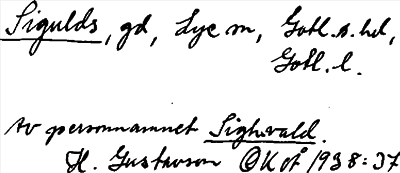 Sigulds, gd, Lye sn, Gotl. s. hd,
Gotl. l.
av personnamnet Sighvald.
H. Gustavson OK å 1938:37